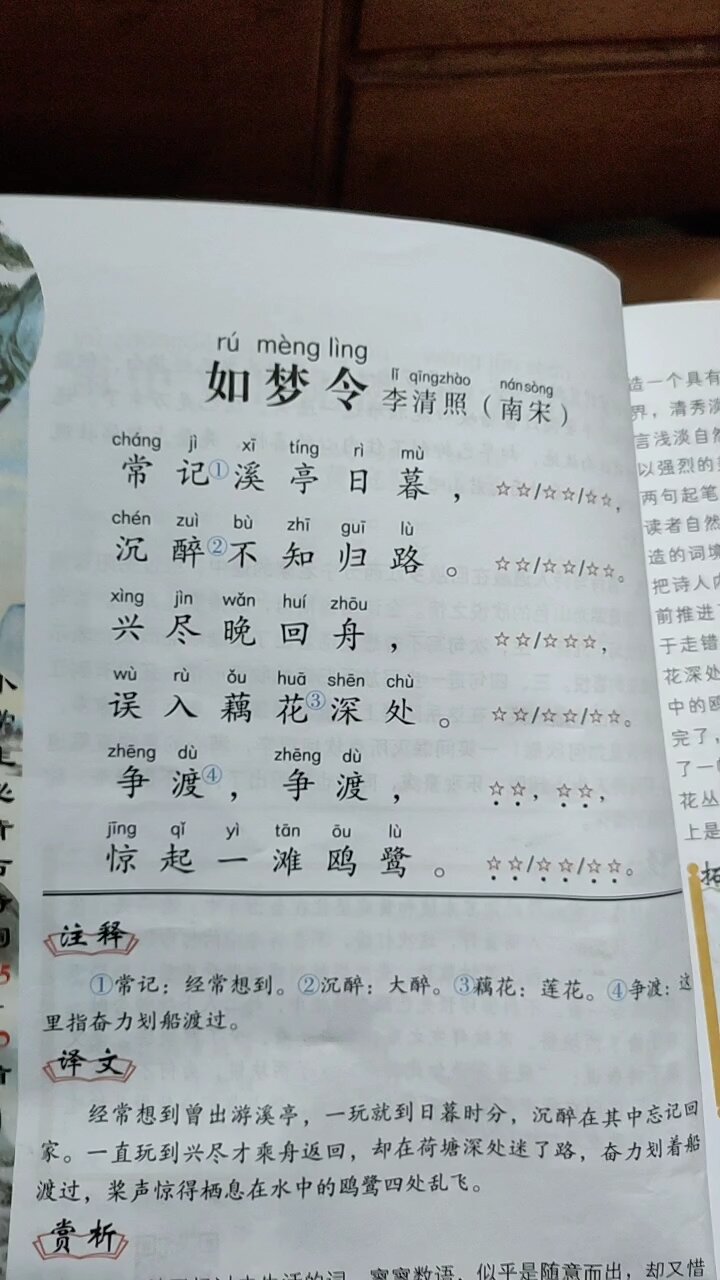 rú mèng lìng
如梦令
lǐ qīngzhào nánsòng
李清照（南宋）
cháng jì xī tíng rì mù
常记①溪亭日暮，☆☆/☆☆/☆☆，
chén zuì bù zhī guī lù
沉醉②不知归路。☆☆/☆☆/☆☆。
xìng jìn wǎn huí zhōu
兴尽晚回舟，☆☆/☆☆☆，
wù rù ǒu huā shēn chù
误入藕花③深处。☆☆/☆☆/☆☆。
zhēng dù zhēng dù
争渡④，争渡，☆☆，☆☆，
jīng qǐ yì tān ōu lù
惊起一滩鸥鹭。☆☆/☆☆/☆☆。
注释
①常记：经常想到。②沉醉：大醉。③藕花：莲花。④争渡：这
里指奋力划船渡过。
译文
经常想到曾出游溪亭，一玩就到日暮时分，沉醉在其中忘记回
家。一直玩到兴尽才乘舟返回，却在荷塘深处迷了路，奋力划着船
渡过，桨声惊得栖息在水中的鸥鹭四处乱飞。
赏析
生活的词，寥寥数语，似乎是随意而出，却又惜
造一个具有
界，清秀淡
言浅淡自然
以强烈的
两句起笔
读者自然
造的词境
把诗人内
前推进
于走错
花深处
中的鸥
完了，
了一
花丛
上是
拓